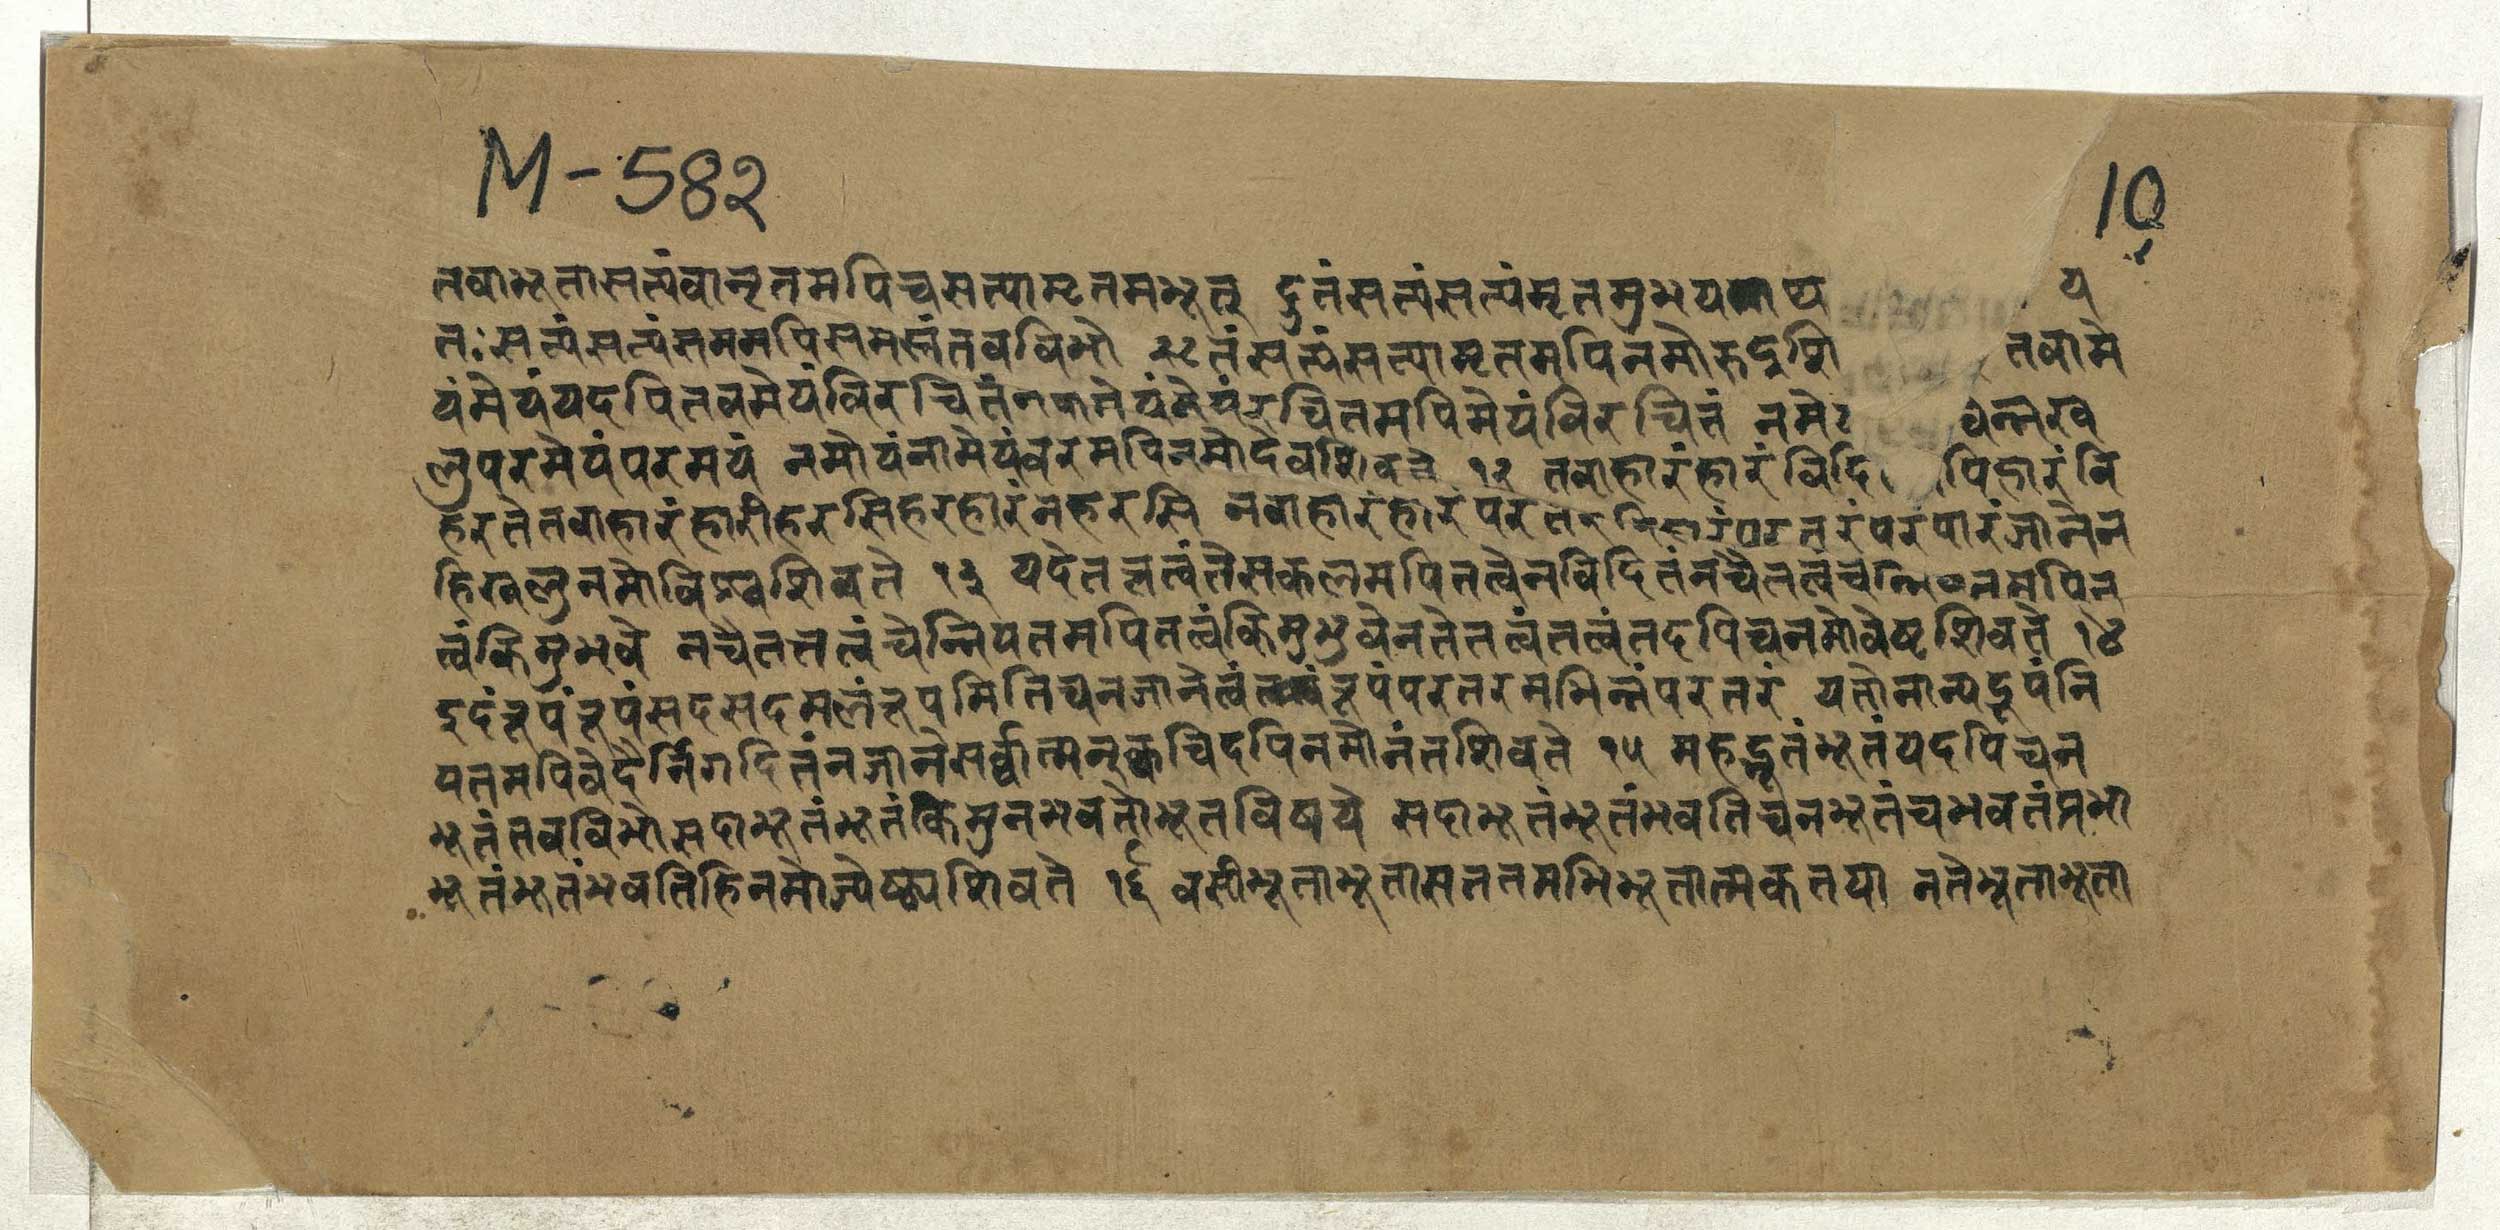 M-582
10
तवाभूतासत्यंवानृतमपिचसत्यामृतमभूत् दृतंसत्यंसत्यंमृतमुभयथाप्य य
तः सत्यंसत्यंसममपिसमस्तंतवविभो तंसत्यंसत्यामृतमपिनमोरुद्रशि तवामे
यंमेयंयदपितवमेयंविरचितं मेयंरचितमपिमेयंविरचितं नमे न्नरव
लुपरमेयंपरमयं नमोयंनामेयंवरमपिनमोदेवशिवते १२ तवाहारंहारंविदि पिहारंवि
हरतेतवाहारंहारीहरसिहरहारंनहरसि नवाहारंहारंपरतर परतरंपरपारंजानेन
हिखलुनमोविश्वशिवते १३ यदेतत्तत्वंतेसकलमपितत्वेनविदितंनचैतत्वंच नमपिन
त्वंकिमुभवे नचैतत्तत्वंचेन्नियतमपितत्वंकिमुभुवेनतेतत्वंतत्वंतदपिचनमोवेष्टशिवते १४
इदंरूपंरूपंसदसदमलंरूपमितिचनजानेत्वं रूपंपरतरमभिन्नंपरतरं यतोनान्यद्रूपंनि
यतमपिवेदैर्निगदितंनजानेसर्वात्मन्क्वचिदपिनमोनंतशिवते १५ महद्भूतंभूतंयदपिचन
भूतंतवविभोसदाभूतंभूतंकिमुनभवतोभूतविषये सदाभूतंभूतंभवतिचनभूतंचभवतंप्रभो
भूतंभूतंभवतिहिनमोज्येष्ठ्यशिवते १६ वसीभूताभूतासततमभिभूतात्मकतया नतेभूताभूता